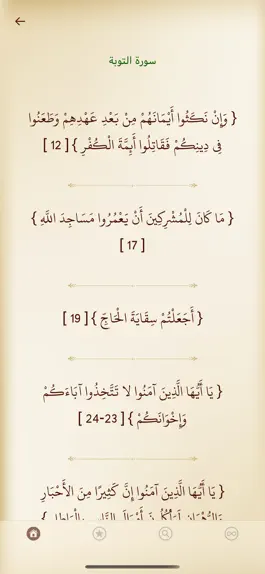 سورة التوبة
{ وَإِنْ نَكَثُوا أَيْمَانَهُمْ مِنْ بَعْدِ عَهْدِهِمْ وَطَعَنُوا
فِي دِينِكُمْ فَقَاتِلُوا أَيِمَّةَ الْكُفْرِ } [ 12 ]
{ مَا كَانَ لِلْمُشْرِكِينَ أَنْ يَعْمُرُوا مَسَاجِدَ اللَّهِ }
[ 17 ]
{ أَجَعَلْتُمْ سِقَايَةَ الْحَاجِّ } [ 19 ]
{ يَا أَيُّهَا الَّذِينَ آمَنُوا لا تَتَّخِذُوا آبَاءَكُمْ
وَإِخْوَانَكُمْ } [ 23-24 ]
{ يَا أَيُّهَا الَّذِينَ آمَنُوا إِنَّ كَثِيرًا مِنَ الأَحْبَارِ